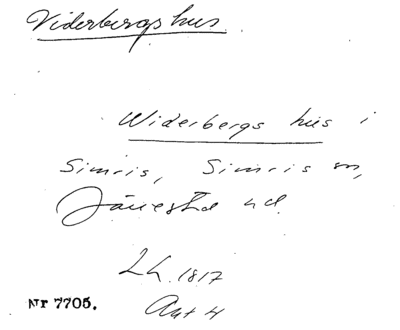 Viderbergs hus.
Widerbergs hus i
Simris, Simris sn,
Järrestad hd.
Lh. 1817
Nr 7705. Akt 4